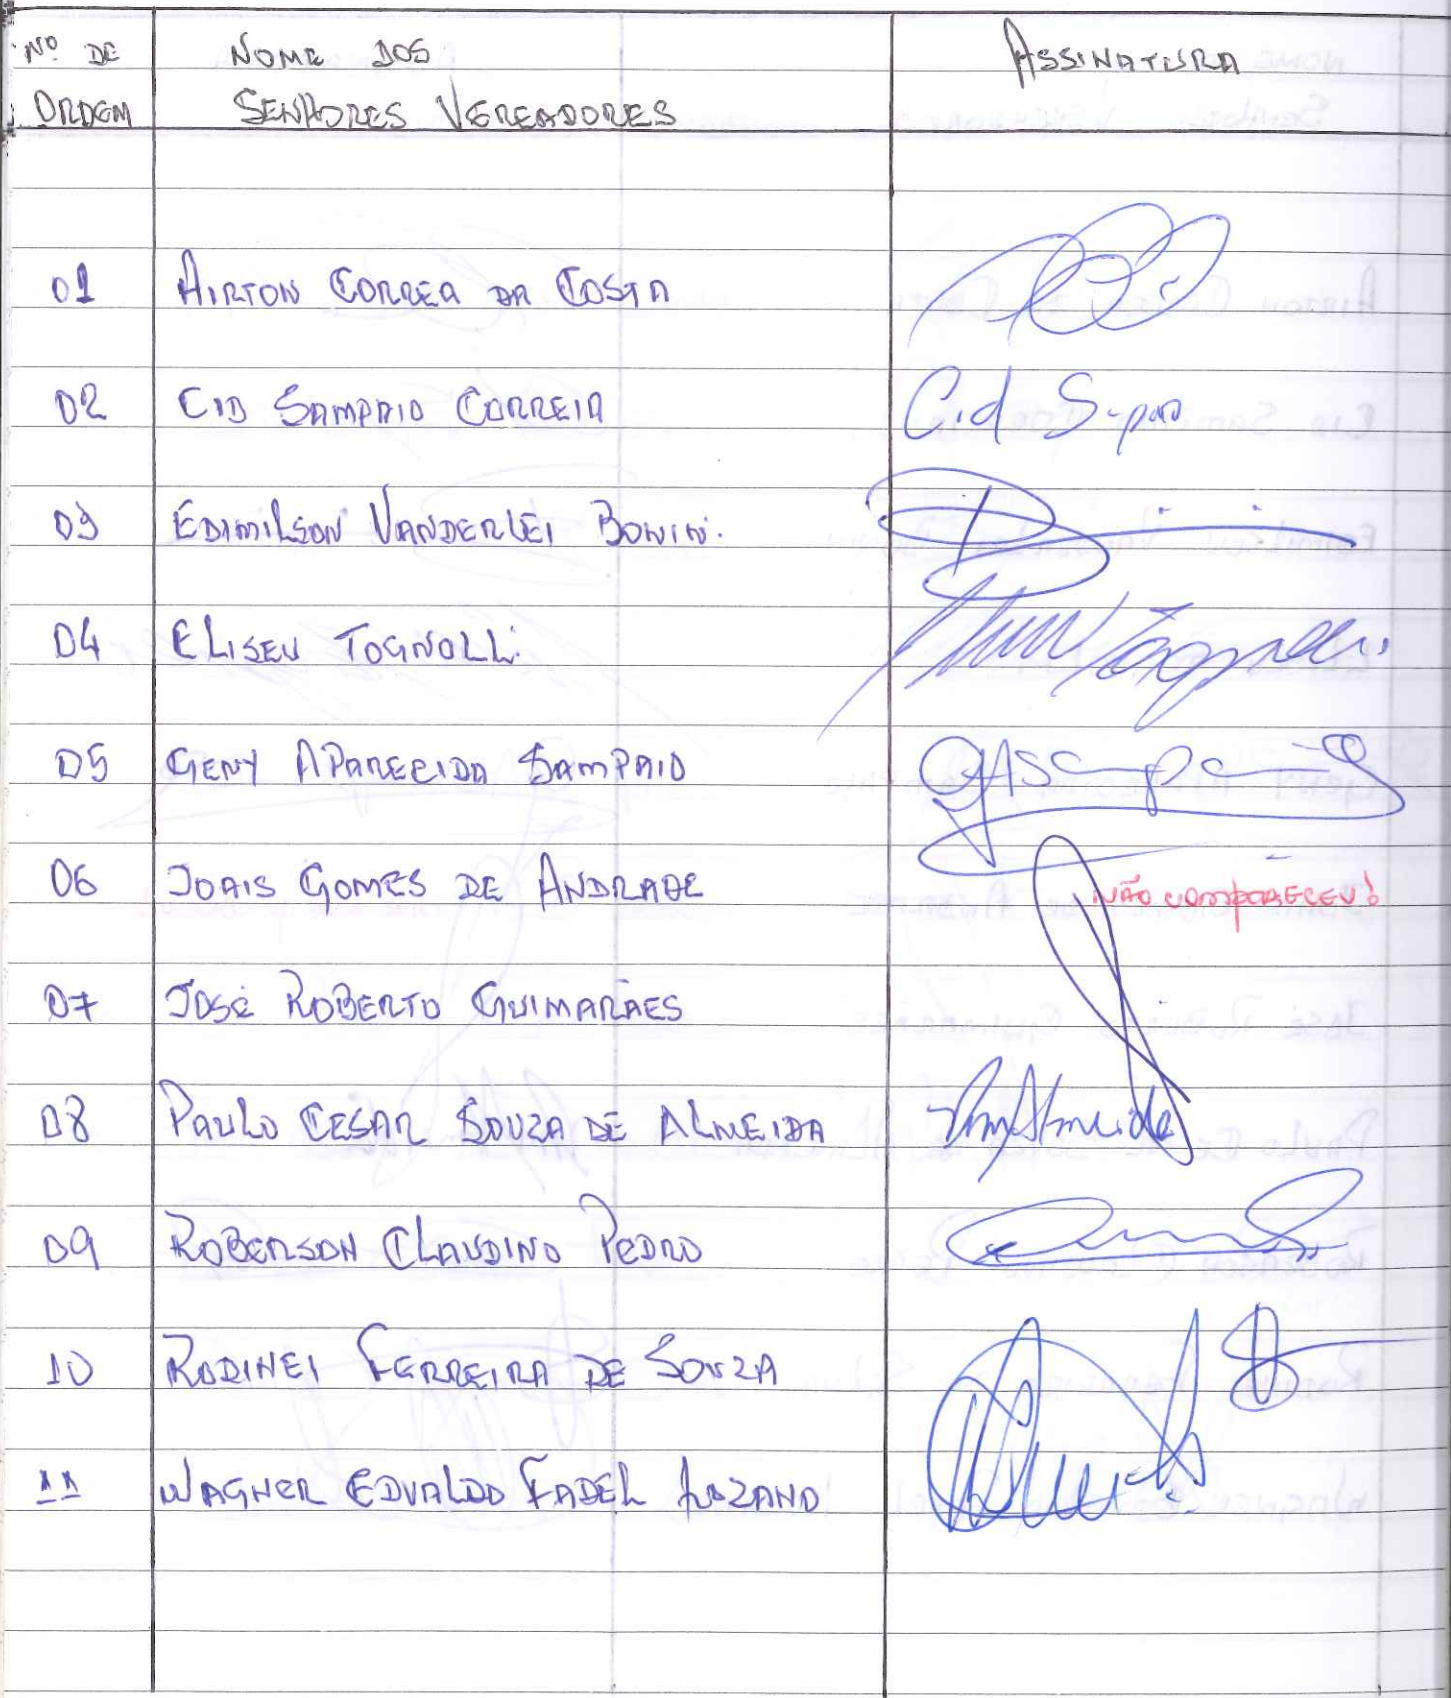 Nº DE NOME DOS ASSINATURA
ORDEM SENHORES VEREADORES
01 AIRTON CORREA DA COSTA
02 CID SAMPAIO CORREIA Cid
03 EDIMILSON VANDERLEI BONINI.
04 ELISEU TOGNOLLI Tognolli
05 GENY APARECIDA SAMPAIO GASampaio
06 JOAIS GOMES DE ANDRADE NÃO COMPARECEU!
07 JOSÉ ROBERTO GUIMARÃES
08 PAULO CESAR SOUZA DE ALMEIDA Almeida
09 ROBERSON CLAUDINO PEDRO
10 RODINEI FERREIRA DE SOUZA
11 WAGNER EDVALDO FADEL LOZANO